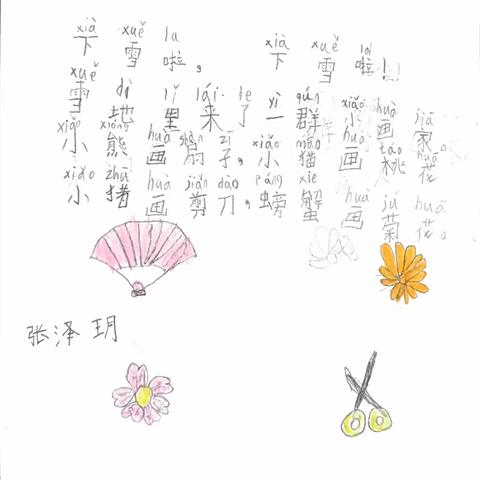 xià xuě la xià xuě la
下雪啦，下雪啦!!
xuě dì lǐ lái le yì qún xiǎo huà jiā
雪地里来了一群小画家。
xiǎo xióng huà shàn zǐ xiǎo māo huà táo huā
小熊画扇子，小猫画桃花。
xiǎo zhū huà jiǎn dāo páng xie huà jú huā
小猪画剪刀，螃蟹画菊花。
张泽玥